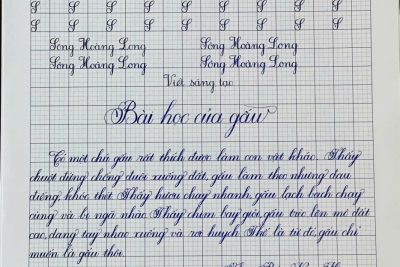 S S S S S S S S S
S S S S S S S S S
Sông Hoàng Long Sông Hoàng Long
Sông Hoàng Long Sông Hoàng Long
Viết sáng tạo
Bài học của gấu
Có một chú gấu rất thích được làm con vật khác. Thấy
chuột đứng chổng đuôi xuống đất, gấu làm theo nhưng đau
điếng khóc thét. Thấy hươu chạy nhanh, gấu lạch bạch chạy
cùng và bị ngã nhào. Thấy chim bay giỏi, gấu trèo lên mô đất
cao, dang tay nhào xuống và rơi huỵch. Thế là từ đó, gấu chỉ
muốn là gấu thôi.